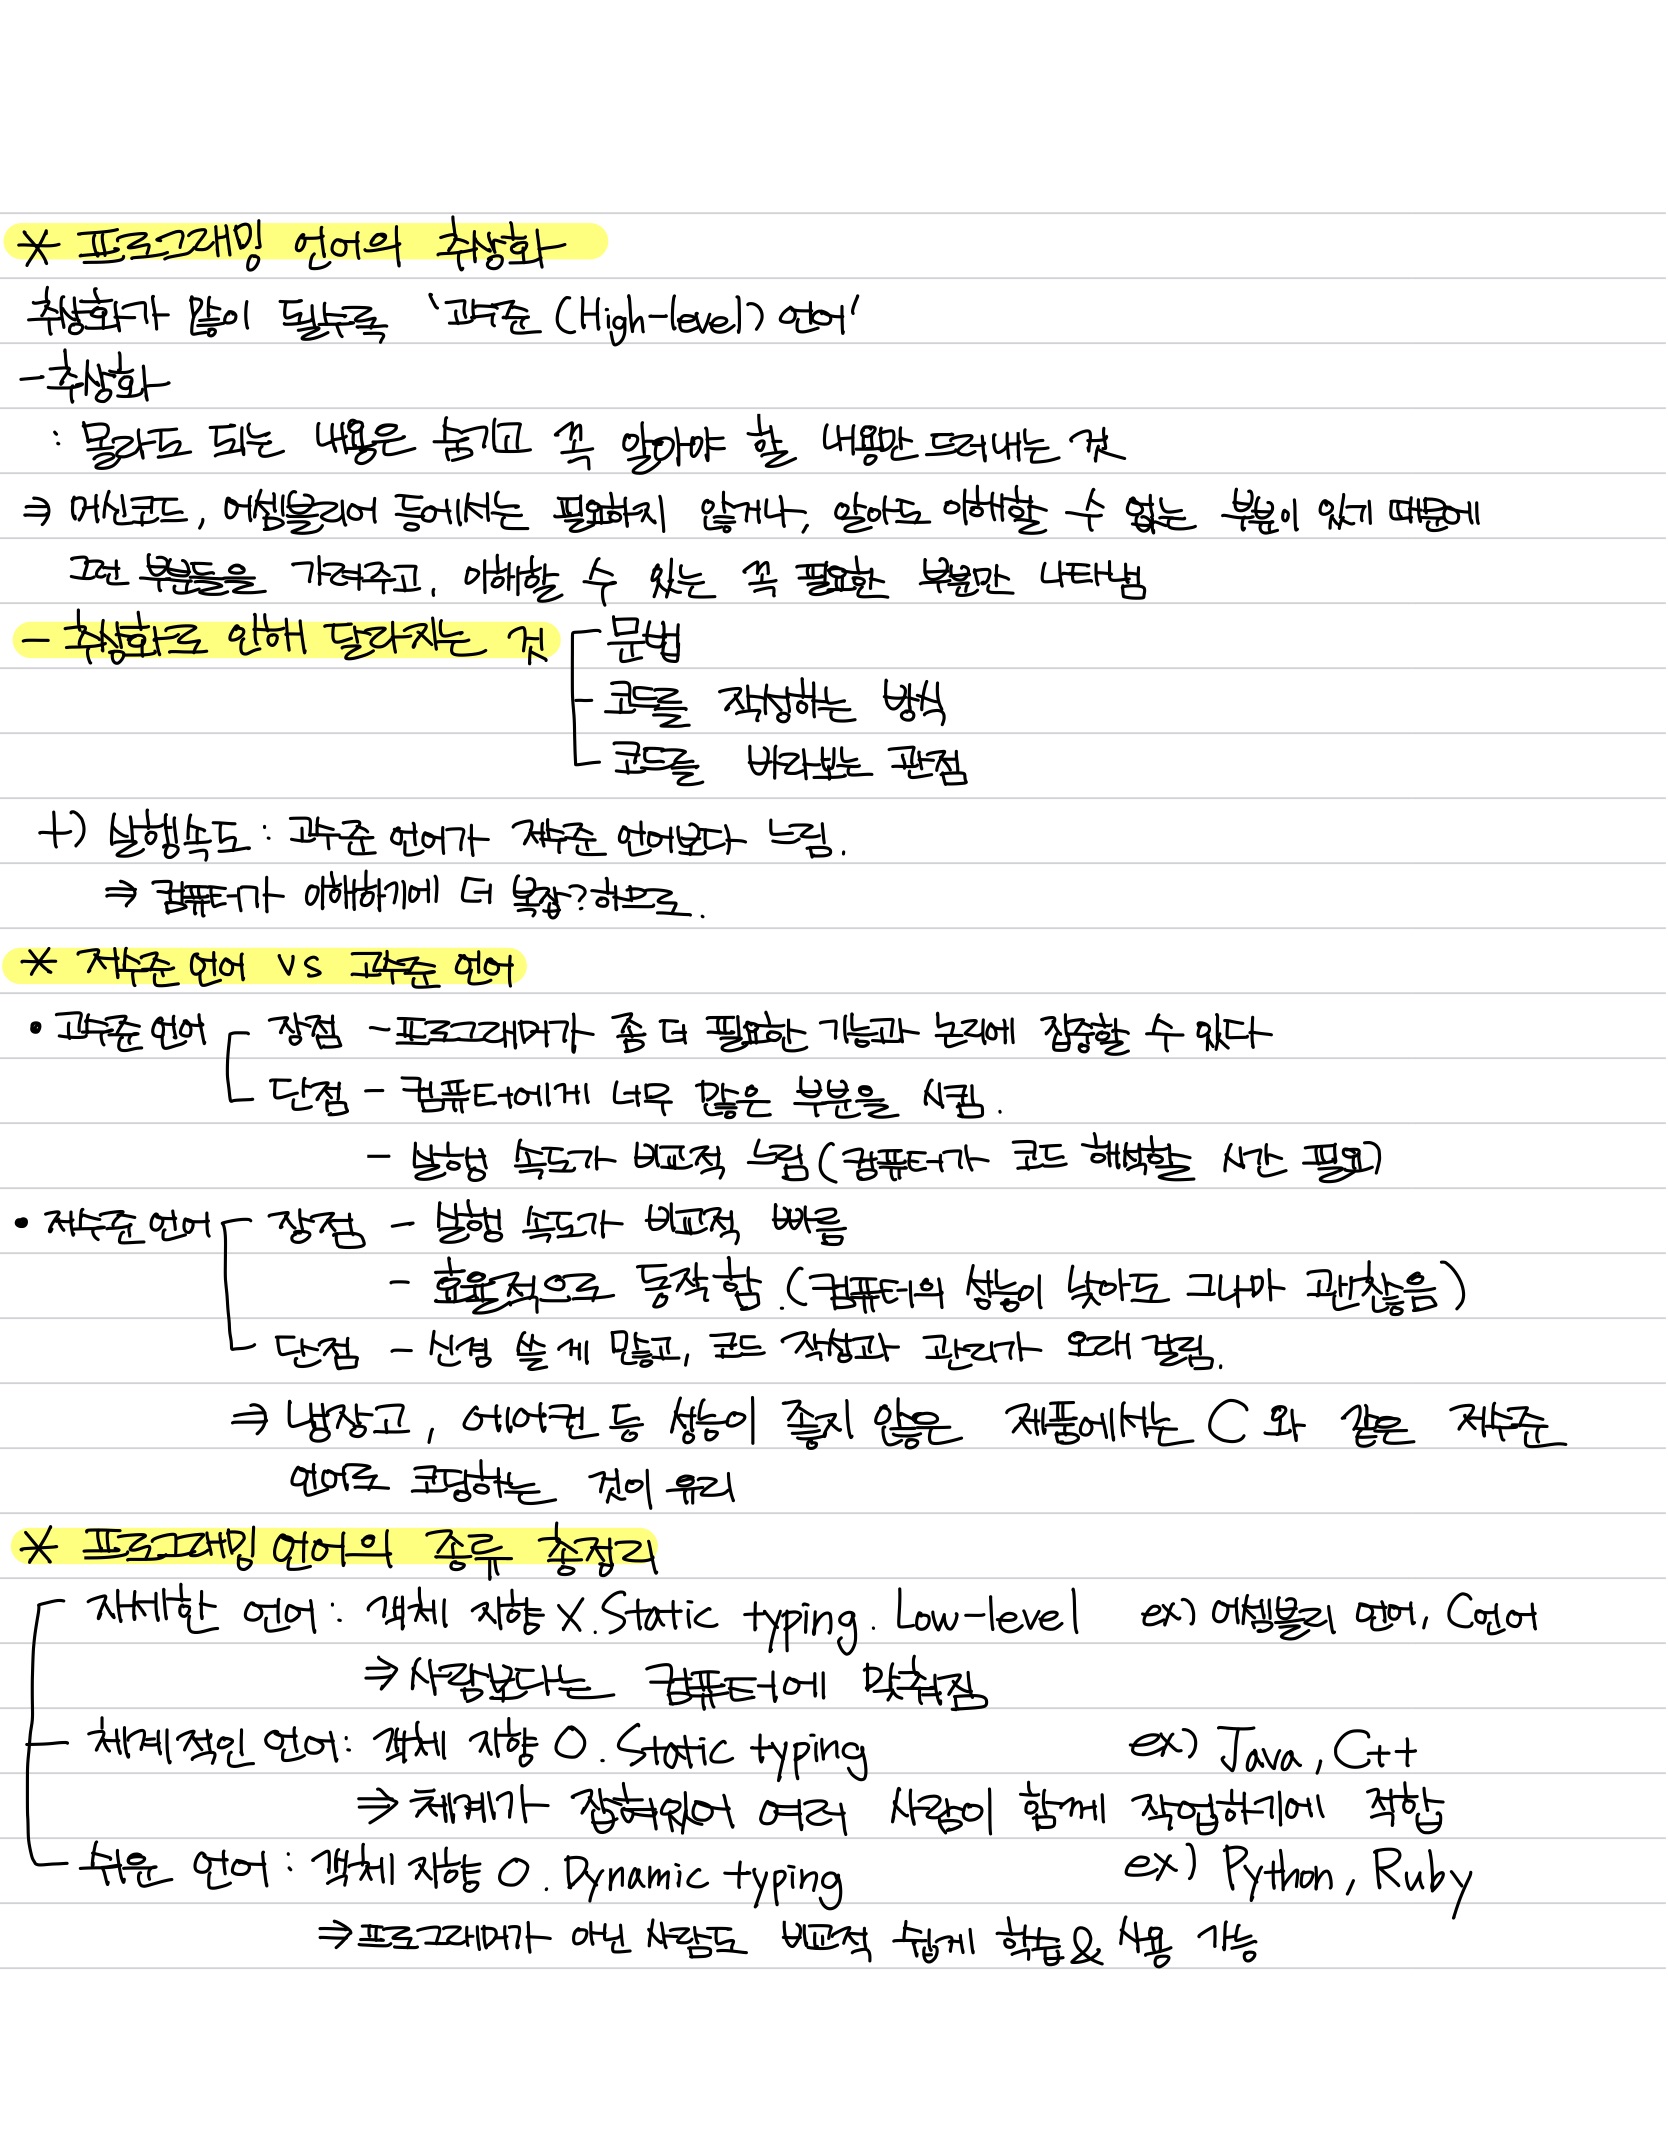 * 프로그래밍 언어의 추상화
추상화가 많이 될수록 '고수준 (High-level) 언어'
- 추상화
: 몰라도 되는 내용은 숨기고 꼭 알아야 할 내용만 드러내는 것
⇒ 머신코드, 어셈블리어 등에서는 필요하지 않거나, 알아도 이해할 수 없는 부분이 있기 때문에
그런 부분들을 가려주고, 이해할 수 있는 꼭 필요한 부분만 나타냄
- 추상화로 인해 달라지는 것 - 문법
- 코드를 작성하는 방식
- 코드를 바라보는 관점
+) 실행속도 : 고수준 언어가 저수준 언어보다 느림.
⇒ 컴퓨터가 이해하기에 더 복잡?하므로.
* 저수준 언어 vs 고수준 언어
• 고수준 언어 - 장점 - 프로그래머가 좀 더 필요한 기능과 논리에 집중할 수 있다
단점 - 컴퓨터에게 너무 많은 부분을 시킴.
- 실행 속도가 비교적 느림 (컴퓨터가 코드 해석할 시간 필요)
• 저수준 언어 - 장점 - 실행 속도가 비교적 빠름
- 효율적으로 동작함. (컴퓨터의 성능이 낮아도 그나마 괜찮음)
단점 - 신경 쓸 게 많고, 코드 작성과 관리가 오래 걸림.
⇒ 냉장고, 에어컨 등 성능이 좋지 않은 제품에서는 C 와 같은 저수준
언어로 코딩하는 것이 유리
* 프로그래밍 언어의 종류 총정리
자세한 언어 : 객체 지향 X. Static typing. Low-level ex) 어셈블리 언어, C언어
⇒ 사람보다는 컴퓨터에 맞춰짐
체계적인 언어 : 객체 지향 O. Static typing ex) Java, C++
⇒ 체계가 잡혀있어 여러 사람이 함께 작업하기에 적합
쉬운 언어 : 객체 지향 O. Dynamic typing ex) Python, Ruby
⇒ 프로그래머가 아닌 사람도 비교적 쉽게 학습 & 사용 가능